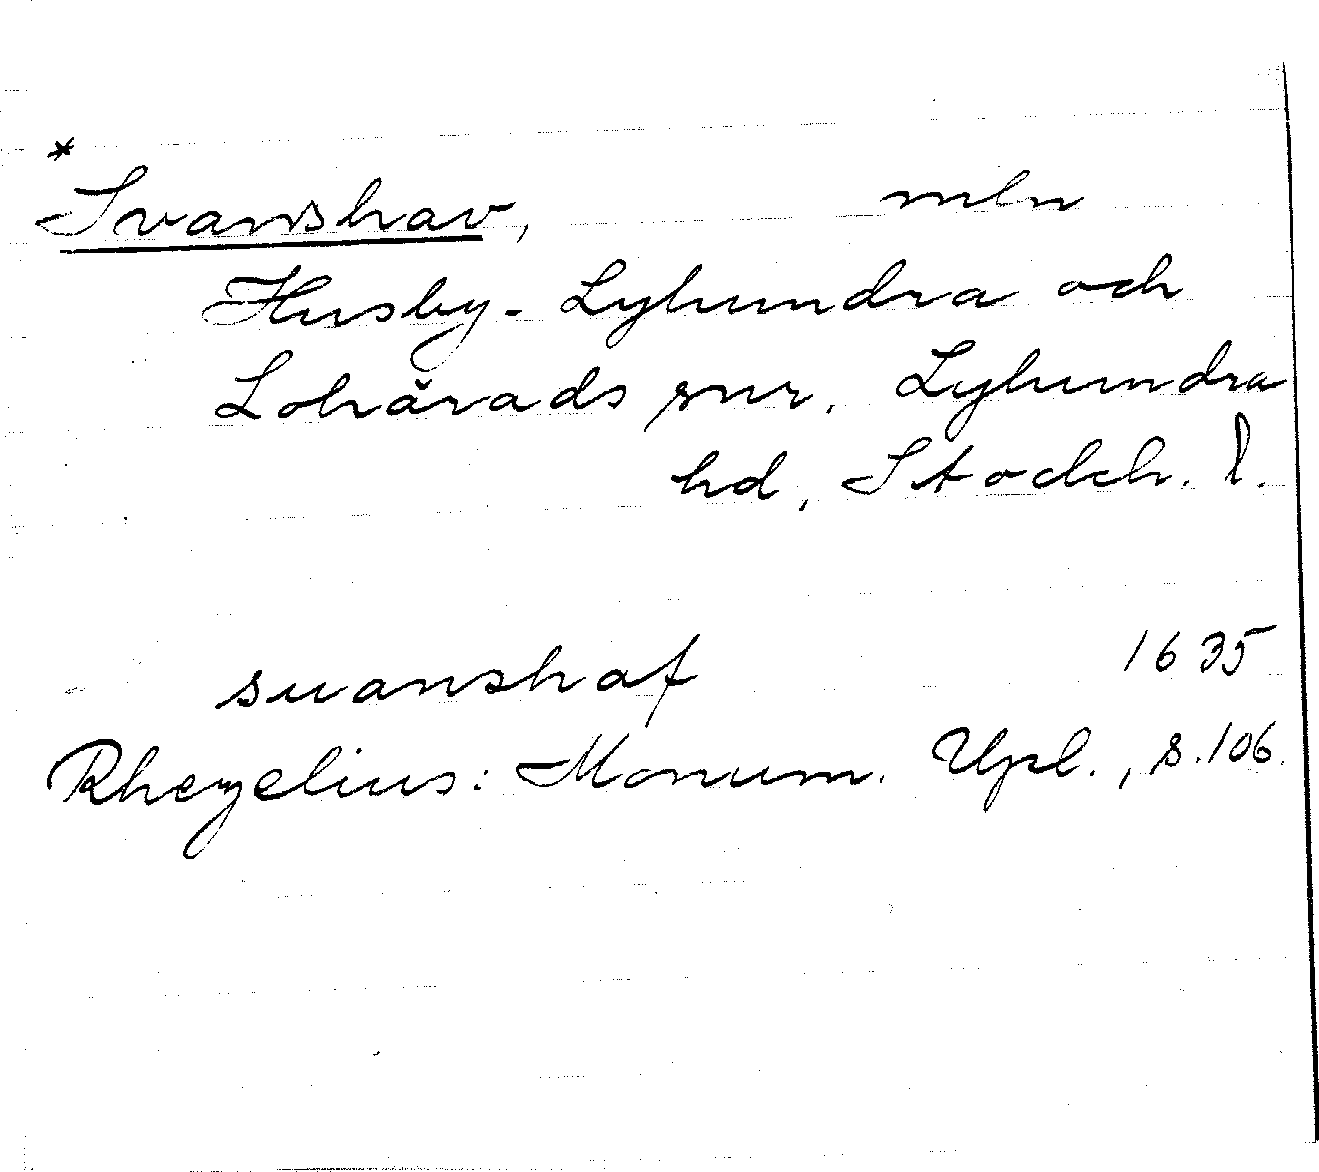 *
Svanshav, mln
Husby-Lyhundra och
Lohärads snr. Lyhundra
hd, Stockh. l.
suanshaf 1635
Rhezelius: Monum. Upl., s.106.